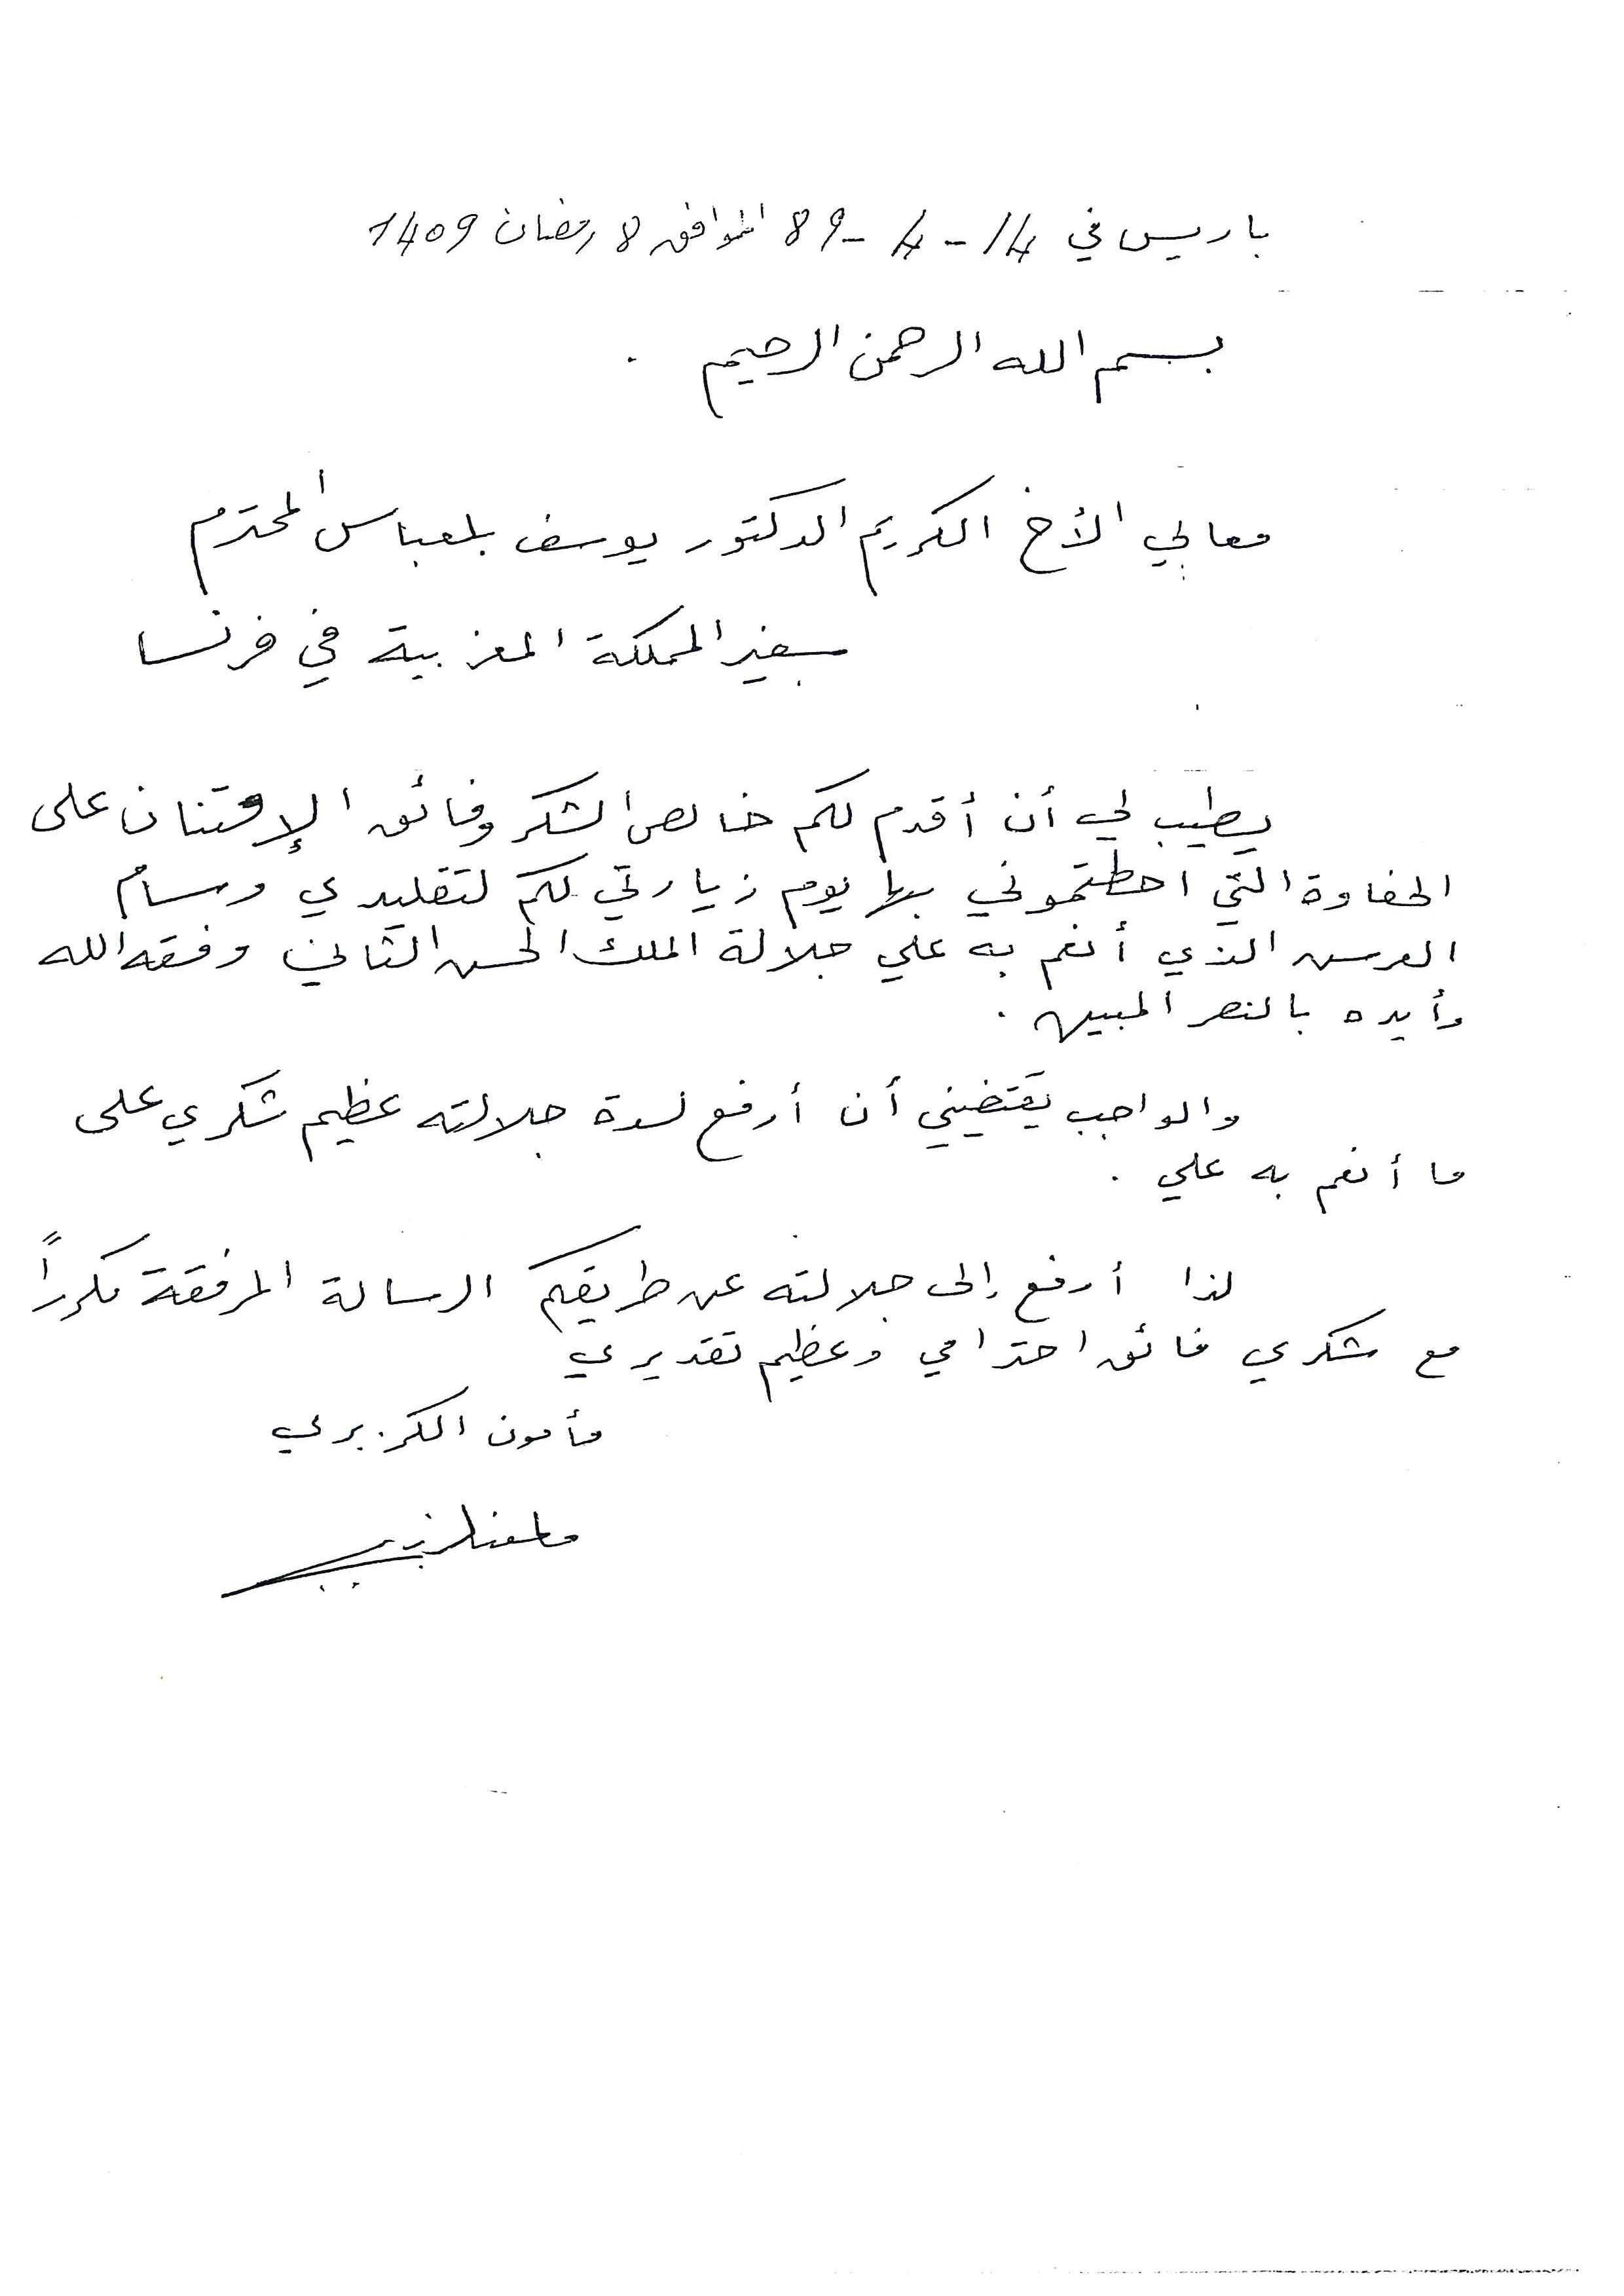 باريس في 14-4-89 الموافق 8 رمضان 1409
بسم الله الرحمن الرحيم .
معالي الأخ الكريم الدكتور يوسف بلعباس المحترم
سفير المملكة المغربية في فرنسا
يطيب لي أن أقدم لكم خالص الشكر وفائق الإمتنان على
الحفاوة التي احطتموني بها يوم زيارتي لكم لتقليدي وسام
العرش الذي أنعم به علي جلالة الملك الحسن الثاني وفقه الله
وأيده بالنصر المبين .
والواجب يقتضيني أن أرفع لسدة جلالته عظيم شكري على
ما أنعم به علي .
لذا أرفع إلى جلالته عن طريقكم الرسالة المرفقة مكرراً
مع شكري فائق احترامي وعظيم تقديري
مأمون الكزبري